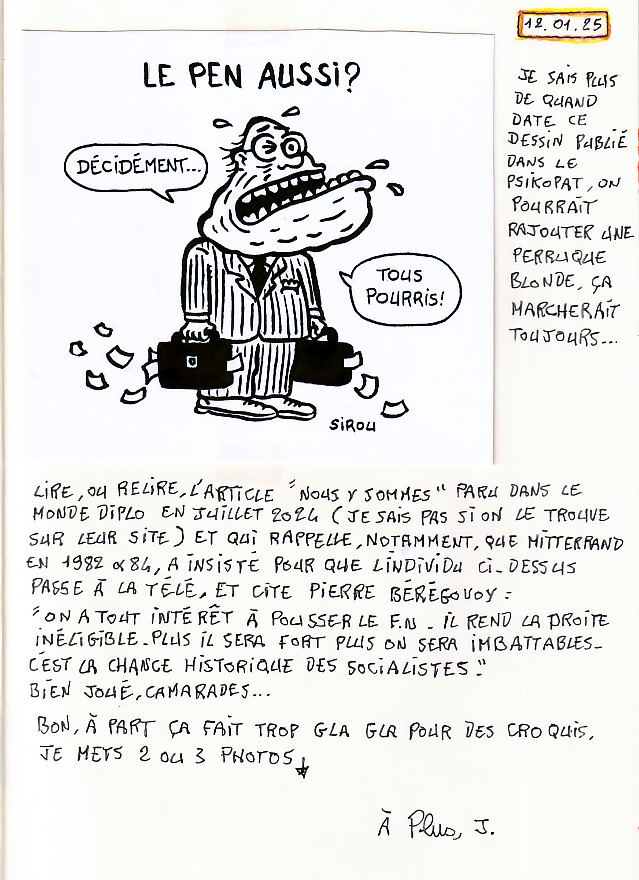 12.01.25
LE PEN AUSSI?
DÉCIDÉMENT...
TOUS
POURRIS!
SIROU
JE SAIS PLUS
DE QUAND
DATE CE
DESSIN PUBLIÉ
DANS LE
PSIKOPAT, ON
POURRAIT
RAJOUTER UNE
PERRUQUE
BLONDE, ÇA
MARCHERAIT
TOUJOURS...
LIRE, OU RELIRE, L'ARTICLE "NOUS Y SOMMES" PARU DANS LE
MONDE DIPLO EN JUILLET 2024 (JE SAIS PAS SI ON LE TROUVE
SUR LEUR SITE) ET QUI RAPPELLE, NOTAMMENT, QUE MITTERRAND
EN 1982 & 84, A INSISTÉ POUR QUE L'INDIVIDU CI-DESSUS
PASSE À LA TÉLÉ, ET CITE PIERRE BÉRÉGOVOY :
"ON A TOUT INTÉRÊT À POUSSER LE F.N - IL REND LA DROITE
INÉLIGIBLE - PLUS IL SERA FORT PLUS ON SERA IMBATTABLES -
C'EST LA CHANCE HISTORIQUE DES SOCIALISTES."
BIEN JOUÉ, CAMARADES...
BON, À PART ÇA FAIT TROP GLA GLA POUR DES CROQUIS,
JE METS 2 OU 3 PHOTOS
À Plus, J.